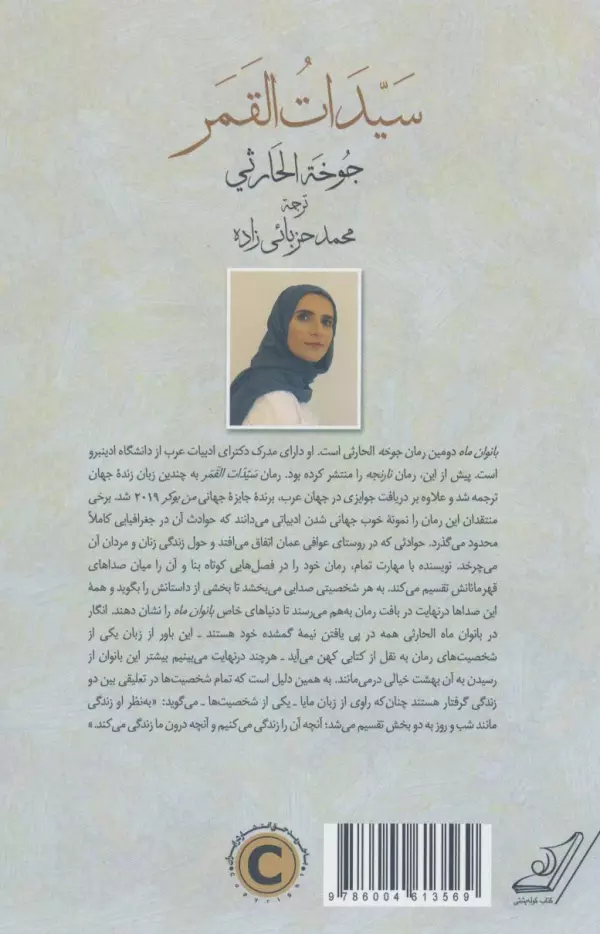 سَيِّدَاتُ القَمَر
جُوخَة الحَارثي
ترجمة
محمد حزبائی زاده
بانوان ماه دومین رمان جوخه الحارثی است. او دارای مدرک دکترای ادبیات عرب از دانشگاه ادینبرو
است. پیش از این، رمان نارنجه را منتشر کرده بود. رمان سَیِّدَات القَمَر به چندین زبان زندهٔ جهان
ترجمه شد و علاوه بر دریافت جوایزی در جهان عرب، برندهٔ جایزهٔ جهانی من بوکر ۲۰۱۹ شد. برخی
منتقدان این رمان را نمونهٔ خوب جهانی شدن ادبیاتی می‌دانند که حوادث آن در جغرافیایی کاملاً
محدود می‌گذرد. حوادثی که در روستای عوافی عمان اتفاق می‌افتد و حول زندگی زنان و مردان آن
می‌چرخد. نویسنده با مهارت تمام، رمان خود را در فصل‌هایی کوتاه بنا و آن را میان صداهای
قهرمانانش تقسیم می‌کند. به هر شخصیتی صدایی می‌بخشد تا بخشی از داستانش را بگوید و همهٔ
این صداها درنهایت در بافت رمان به‌هم می‌رسند تا دنیاهای خاص بانوان ماه را نشان دهند. انگار
در بانوان ماه الحارثی همه در پی یافتن نیمهٔ گمشده خود هستند ـ این باور از زبان یکی از
شخصیت‌های رمان به نقل از کتابی کهن می‌آید ـ هرچند درنهایت می‌بینیم بیشتر این بانوان از
رسیدن به آن بهشت خیالی درمی‌مانند. به همین دلیل است که تمام شخصیت‌ها در تعلیقی بین دو
زندگی گرفتار هستند چنان‌که راوی از زبان مایا ـ یکی از شخصیت‌ها ـ می‌گوید: «به‌نظر او زندگی
مانند شب و روز به دو بخش تقسیم می‌شد؛ آنچه آن را زندگی می‌کنیم و آنچه درون ما زندگی می‌کند.»
C
9 786004 613569
کتاب کوله‌پشتی